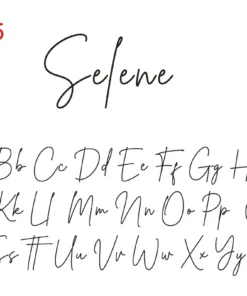 5
Selene
Bb Cc Dd Ee Ff Gg H
Kk Ll Mm Nn Oo Pp
Ss Tt Uu Vv Ww Xx Yy